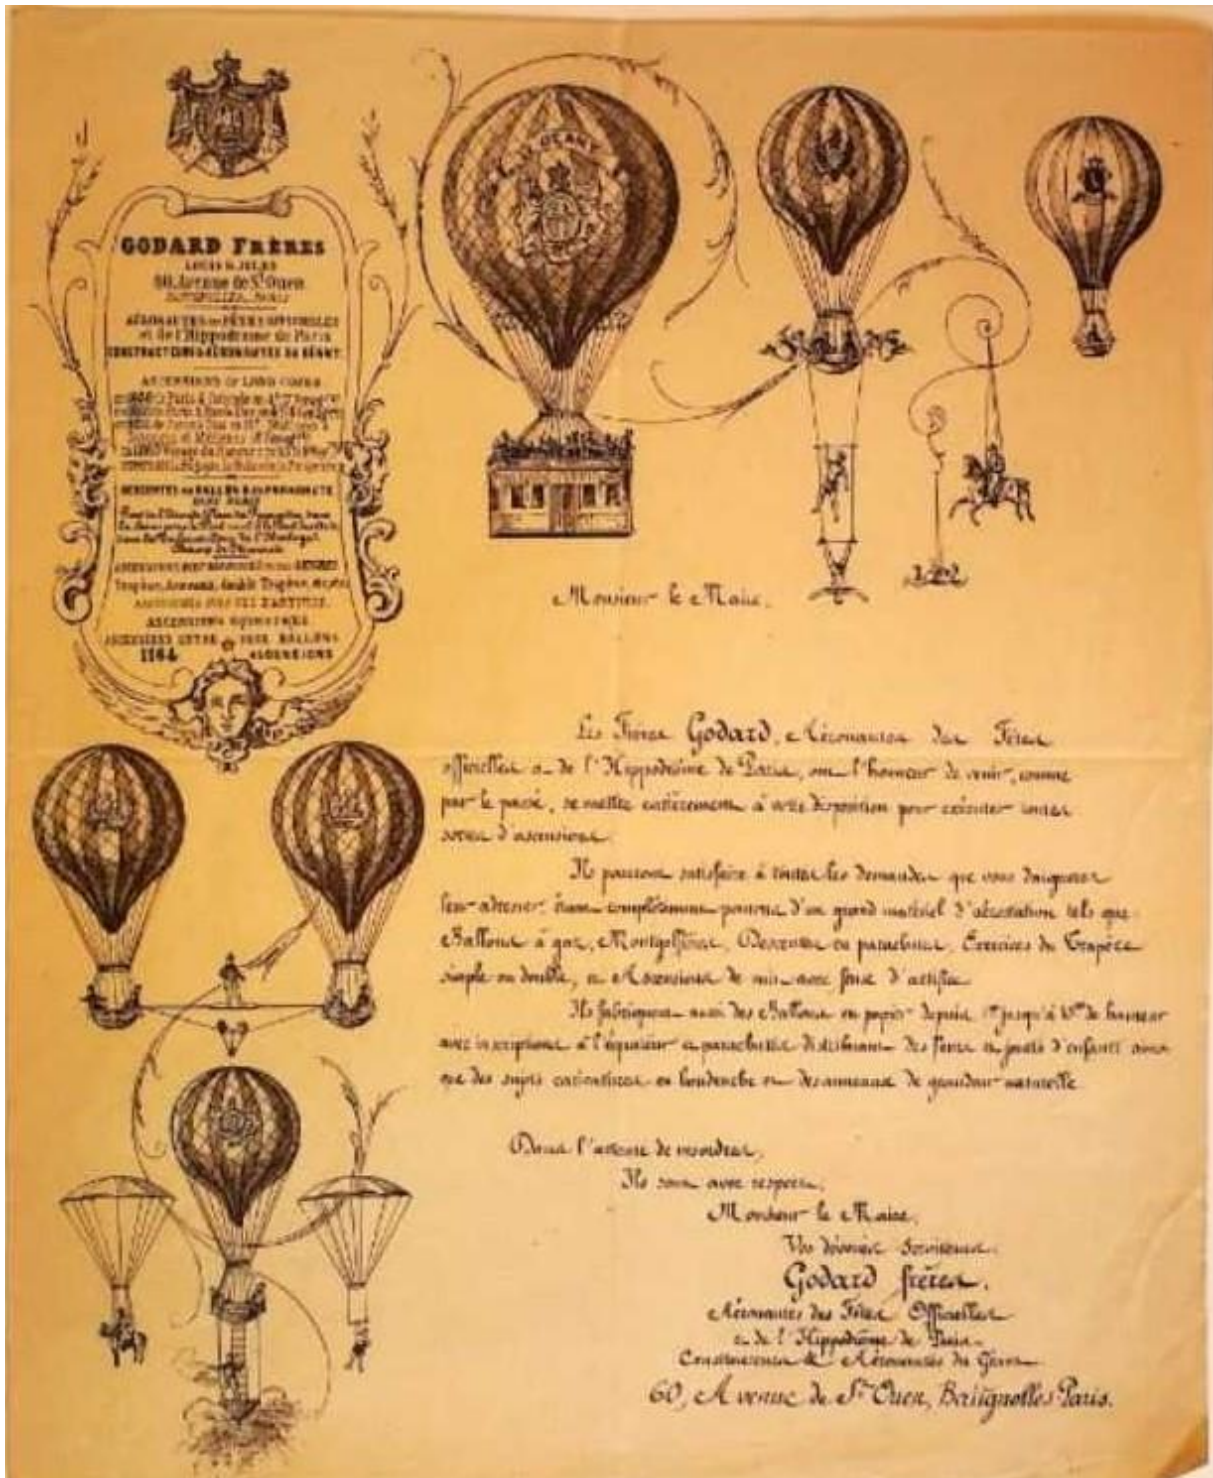 GODARD FRÈRES
LOUIS & JULES
60, Avenue de St Ouen
BATIGNOLLES, PARIS
AÉRONAUTES DES FÊTES OFFICIELLES
et de l'Hippodrome de Paris
CONSTRUCTEURS & AÉRONAUTES DU GÉANT
ASCENSIONS DE LONG COURS
DESCENTES EN BALLON & EN PARACHUTE
DANS PARIS
Trapèze, Anneaux, double Trapèze,
ASCENSIONS AVEC FEU D'ARTIFICE
ASCENSIONS ÉQUESTRES
ASCENSIONS ENTRE DEUX BALLONS
1164 ASCENSIONS
LE GÉANT
Monsieur le Maire,
Les Frères Godard, Aéronautes des Fêtes
officielles & de l'Hippodrôme de Paris, ont l'honneur de venir, comme
par le passé, se mettre entièrement à votre disposition pour exécuter toutes
sortes d'ascensions.
Ils pourront satisfaire à toutes les demandes que vous daignerez
leur adresser, étant complètement pourvus d'un grand matériel d'aérostation tels que
Ballons à gaz, Montgolfières, Descentes en parachutes, Exercices du Trapèze
simple ou double, et Ascensions de nuit avec feux d'artifice.
Ils fabriquent aussi des Ballons en papier depuis 1m jusqu'à 15m de hauteur
avec inscriptions à l'équateur et parachutes distribuant des fleurs et jouets d'enfants ainsi
que des sujets caricatures en baudruche ou des animaux de grandeur naturelle.
Dans l'attente de vos ordres,
Ils sont avec respect,
Monsieur le Maire,
Vos dévoués Serviteurs.
Godard frères.
Aéronautes des Fêtes Officielles
& de l'Hippodrôme de Paris
Constructeurs & Aéronautes du Géant
60, Avenue de St Ouen, Batignolles Paris.